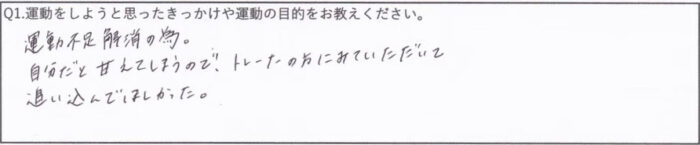 Q1.運動をしようと思ったきっかけや運動の目的をお教えください。
運動不足解消の為。
自分だと甘えてしまうので、トレーナーの方にみていただいて
追い込んでほしかった。